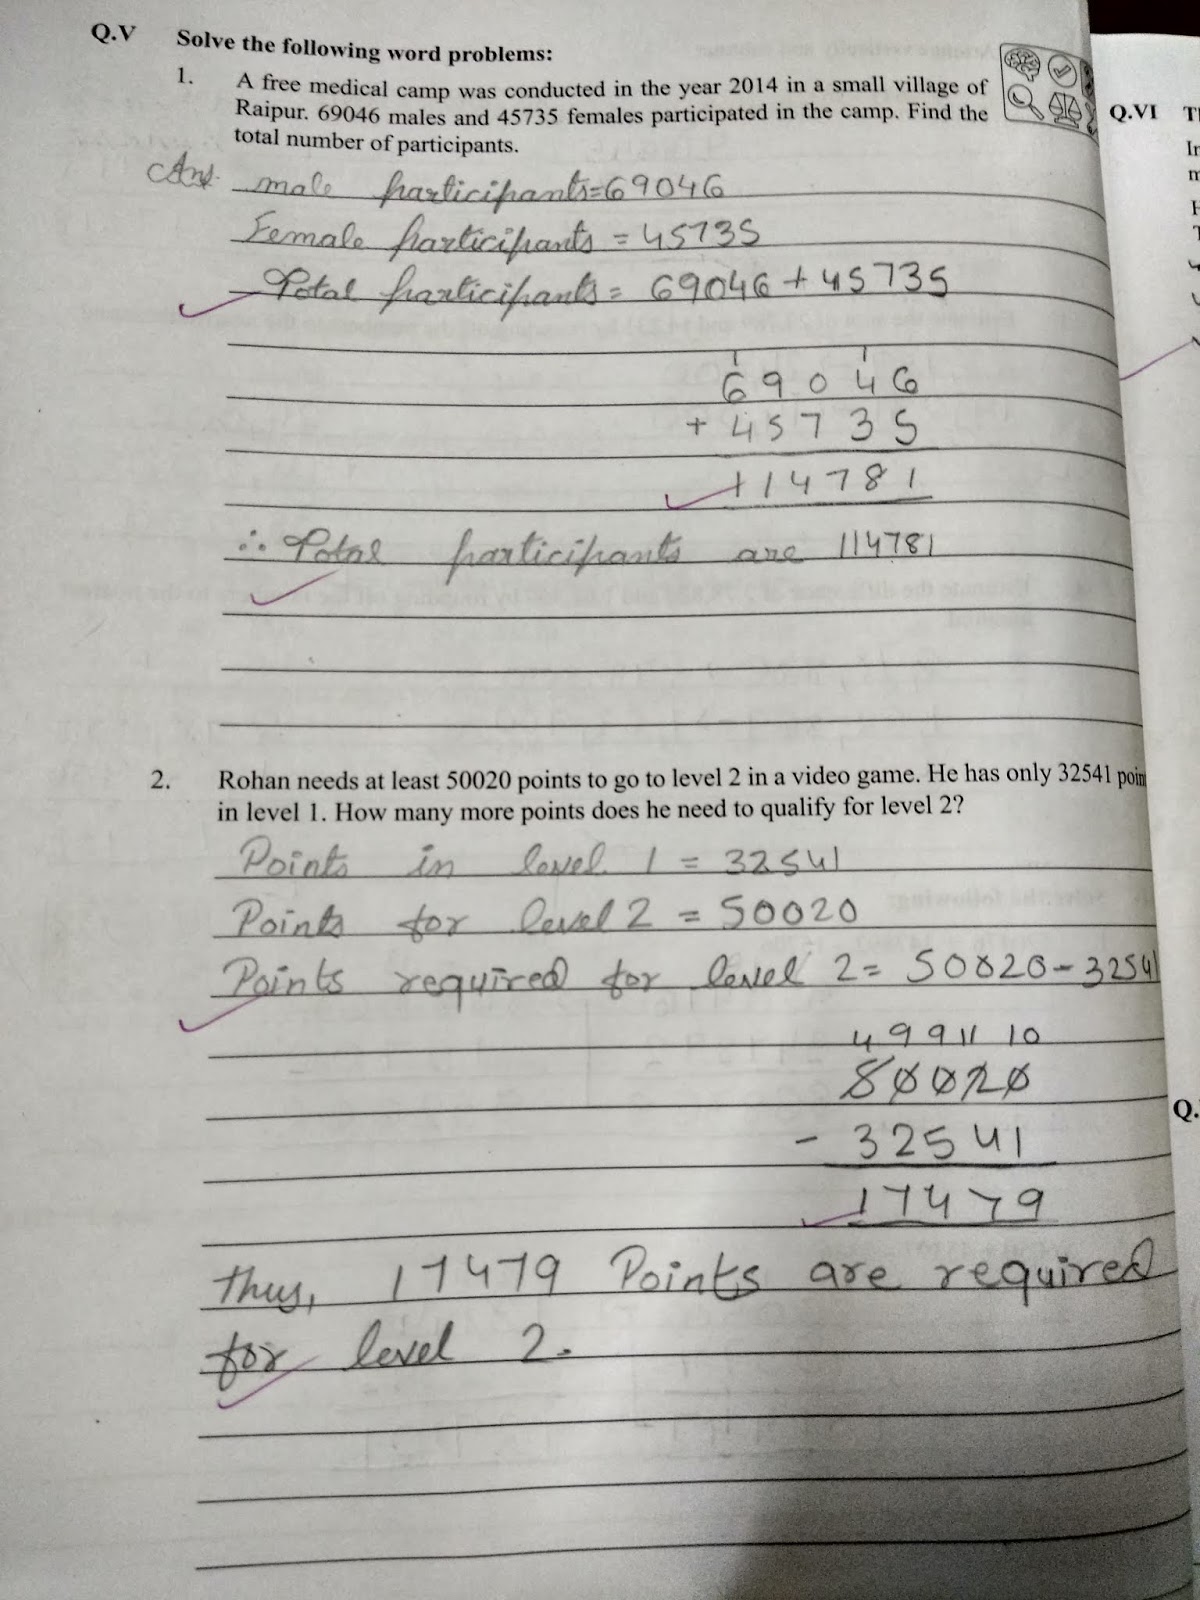 Q.V Solve the following word problems:
1. A free medical camp was conducted in the year 2014 in a small village of
Raipur. 69046 males and 45735 females participated in the camp. Find the
total number of participants.
Ans. male participants=69046
Female participants = 45735
Total participants = 69046 + 45735
1 1
6 9 0 4 6
+ 4 5 7 3 5
114781
∴ Total participants are 114781
2. Rohan needs at least 50020 points to go to level 2 in a video game. He has only 32541 poin
in level 1. How many more points does he need to qualify for level 2?
Points in level 1 = 32541
Points for level 2 = 50020
Points required for level 2 = 50020-32541
4 9 9 11 10
50020
- 32541
17479
Thus, 17479 Points are required
for level 2.
Q.VI
Q.